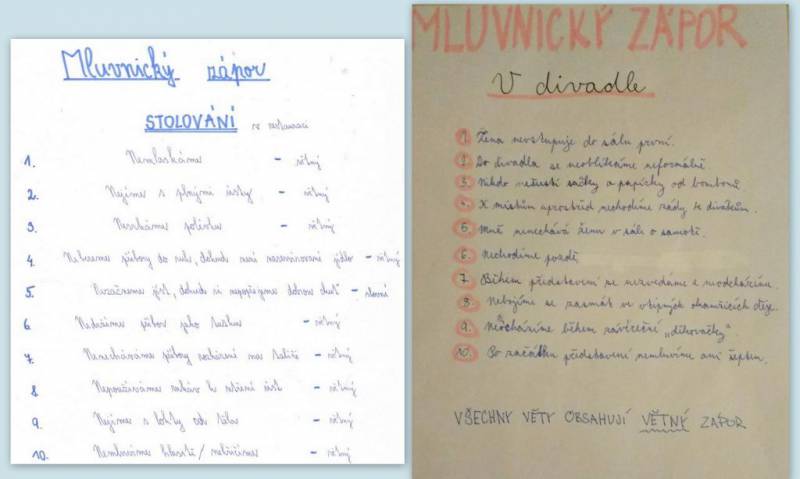 Mluvnický zápor
STOLOVÁNÍ v restauraci
1. Nemlaskáme – větný
2. Nejíme s plnými ústy – větný
3. Nesrkáme polévku – větný
4. Nebereme příbory do ruk, dokud není naservírované jídlo – větný
5. Nezačneme jíst, dokud si nepopřejeme dobrou chuť – slovní
6. Nedržíme příbor jako tužku – větný
7. Nenecháváme příbory na talíři – větný
8. Nepoužíváme rukáv k utření úst – větný
9. Nejíme s lokty od těla – větný
10. Nemluvíme hlasitě / nekřičíme – větný
MLUVNICKÝ ZÁPOR
V divadle
1. Žena nevstupuje do sálu první.
2. Do divadla se neoblékáme neformálně.
3. Nikdo nešustí sáčky a papírky od bonbonů.
4. K místům uprostřed nechodíme zády k divákům.
5. Muž nenechává ženu v sále o samotě.
6. Nechodíme pozdě.
7. Během představení se nezvedáme a neodcházíme.
8. Nebojíme se zasmát ve vtipných okamžicích děje.
9. Neodcházíme během závěrečné „děkovačky"
10. Po začátku představení nemluvíme ani šeptem.
VŠECHNY VĚTY OBSAHUJÍ VĚTNÝ ZÁPOR